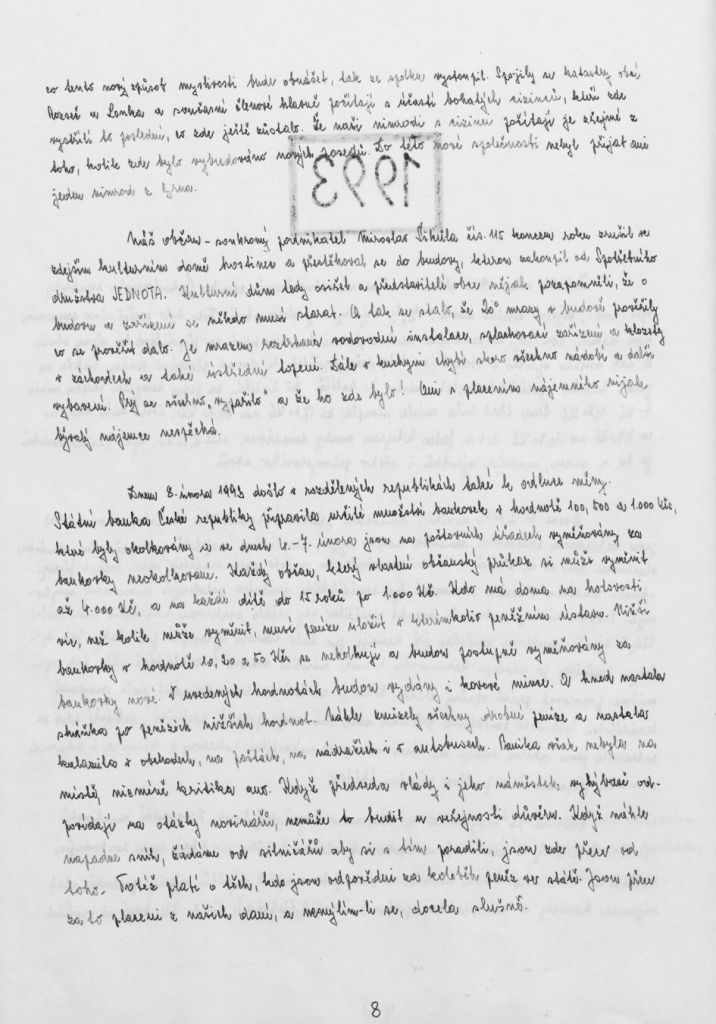 co tento nový způsob myslivosti bude obnášet, tak ze spolku vystoupil. Spojily se katastry obcí
Rozseč a Lhota a současní členové hlavně počítají s účastí bohatých cizinců, kteří zde
vystřílí to poslední, co zde ještě zůstalo. Že naši nimrodi s cizinci počítají je zřejmé z
toho, kolik zde bylo vybudováno nových posedů. Do této nové společnosti nebyl přijat ani
jeden nimrod z Brna.
1993
Náš občan - soukromý podnikatel Miroslav čís. 115 koncem roku zrušil ve
zdejším kulturním domě hostinec a přestěhoval se do budovy, kterou zakoupil od Spotřebního
družstva JEDNOTA. Kulturní dům tedy osiřel a představitelé obce nějak pozapomněli, že o
budovu a zařízení se někdo musí starat. A tak se stalo, že 20° mrazy v budově prověřily
co se prověřit dalo. Je mrazem roztrhaná vodovodní instalace, splachovací zařízení a klozety
v záchodech a také ústřední topení. Dále v kuchyni chybí skoro všechno nádobí a další
vybavení. Prý se všechno „vypařilo" a že ho zde bylo! Ani s placením nájemného nijak
bývalý nájemce nespěchá.
Dnem 8. února 1993 došlo v rozdělených republikách také k odluce měny.
Státní banka České republiky připravila určité množství bankovek v hodnotě 100, 500 a 1.000 Kčs,
které byly okolkovány a ve dnech 4. - 7. února jsou na poštovních úřadech vyměňovány za
bankovky neokolkované. Každý občan, který vlastní občanský průkaz si může vyměnit
až 4.000 Kč, a na každé dítě do 15 roků po 1.000 Kč. Kdo má doma na hotovosti
víc, než kolik může vyměnit, musí peníze uložit v kterémkoliv peněžním ústavu. Nižší
bankovky v hodnotě 10, 20 a 50 Kčs se nekolkují a budou postupně vyměňovány za
bankovky nové. V uvedených hodnotách budou vydány i kovové mince. A hned nastala
sháňka po penězích nižších hodnot. Náhle zmizely všechny drobné peníze a nastala
kalamita v obchodech, na poštách, na nádražích i v autobusech. Panika však nebyla na
místě, nicméně kritika ano. Když předseda vlády i jeho náměstek vyhýbavě od-
povídají na otázky novinářů, nemůže to budit u veřejnosti důvěru. Když náhle
napadne sníh, žádáme od silničářů aby si s tím poradili, jsou zde přece od
toho. Totéž platí o těch, kdo jsou odpovědni za koloběh peněz ve státě. Jsou přece
za to placeni z našich daní, a nemýlím-li se, docela slušně.
8